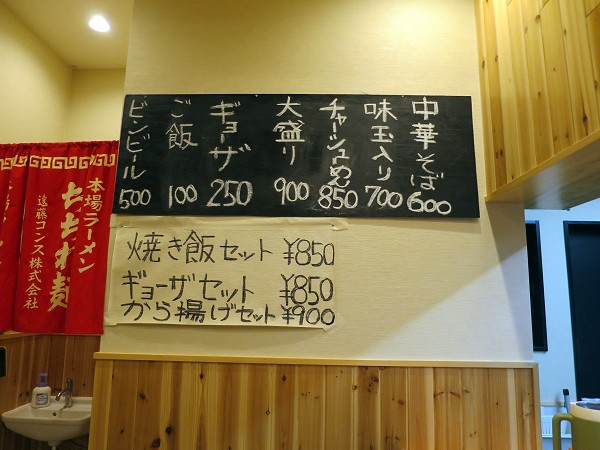 中華そば 600
味玉入り 700
チャーシュめん 850
大盛り 900
ギョーザ 250
ご飯 100
ビンビール 500
焼き飯セット ¥850
ギョーザセット ¥850
から揚げセット ¥900
本場ラーメン
遠藤コンス株式会社